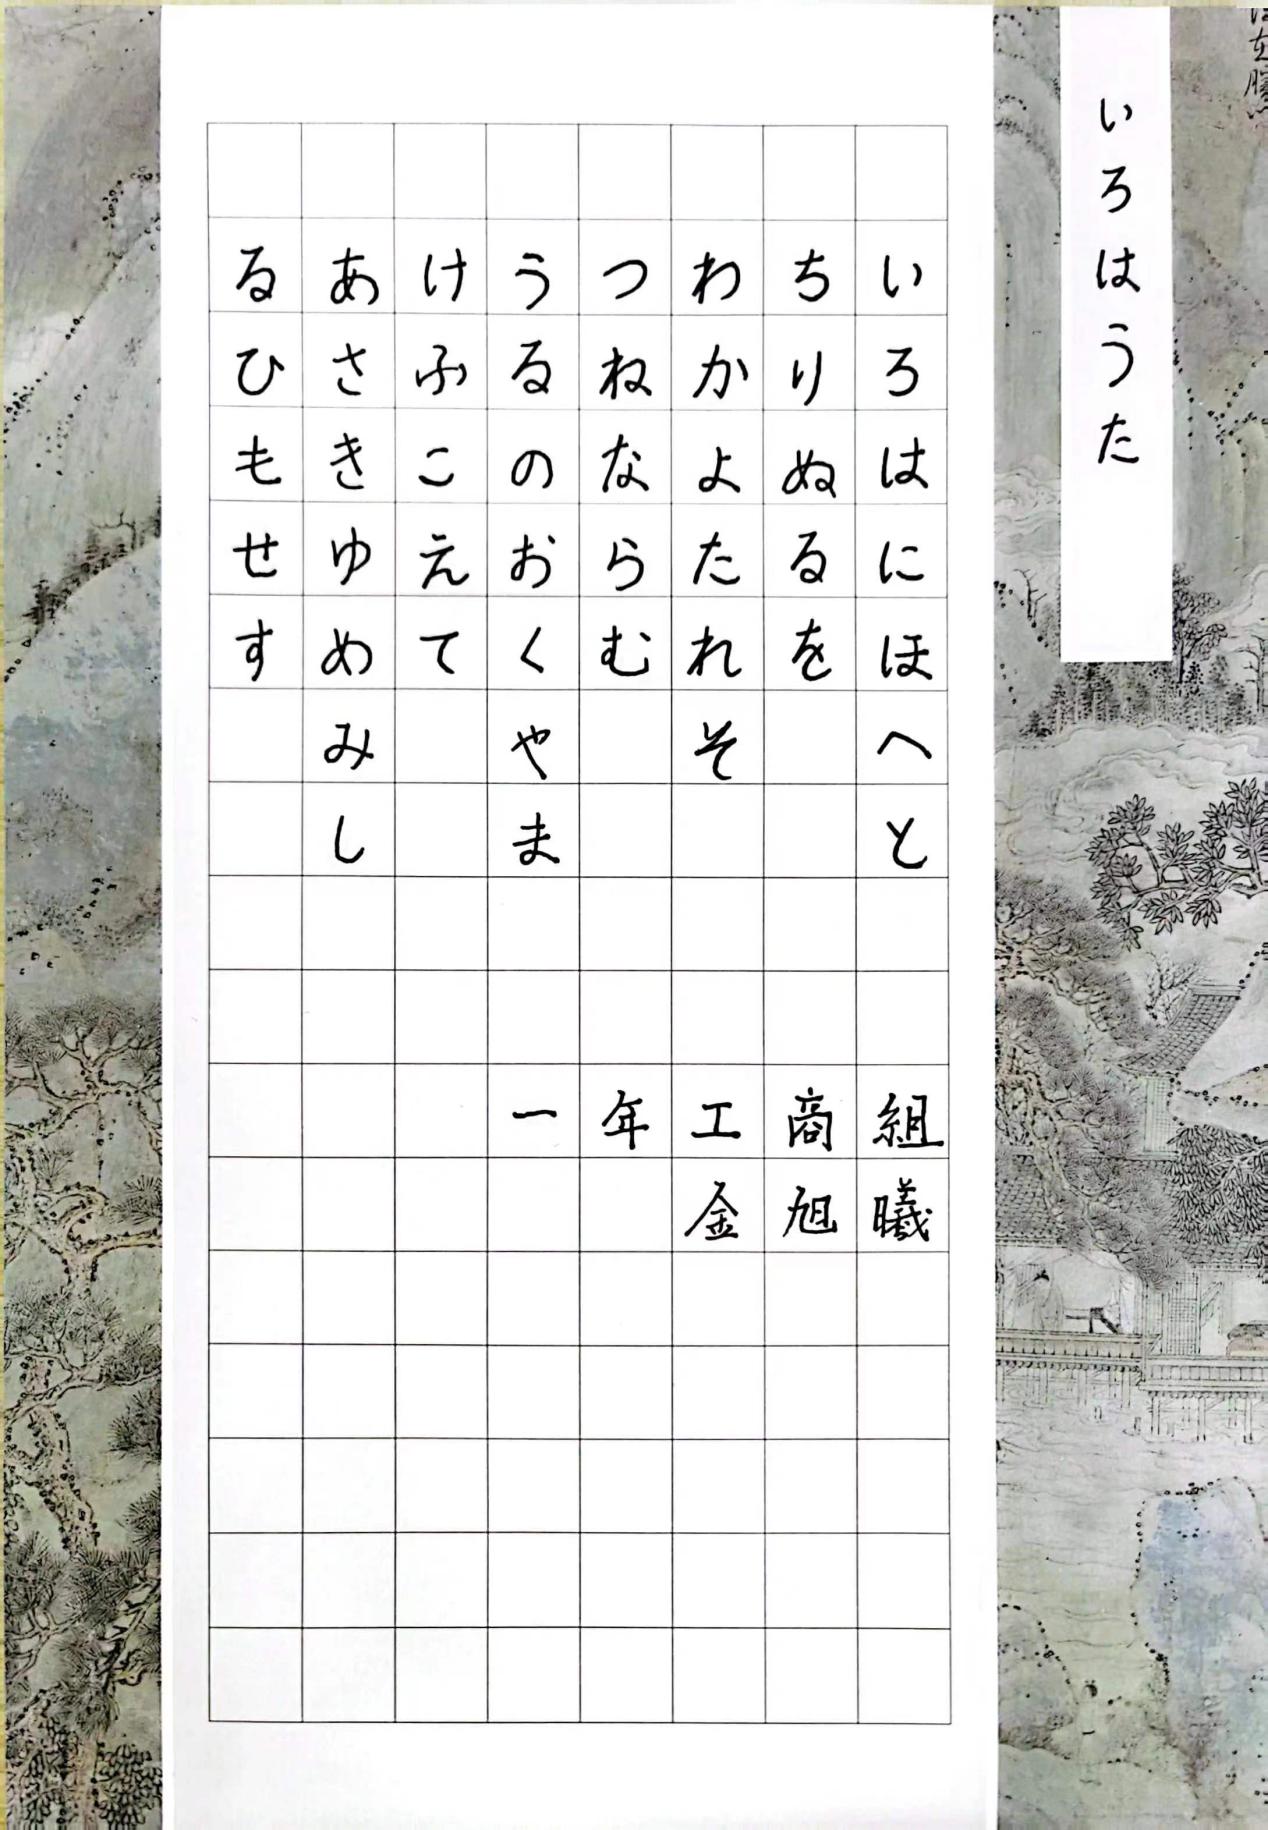 いろはうた
いろはにほへと
ちりぬるを
わかよたれそ
つねならむ
うるのおくやま
けふこえて
あさきゆめみし
るひもせす
一年工商組
金旭曦